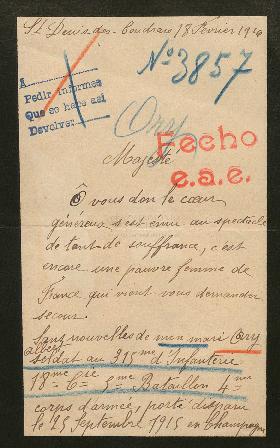 St Denis des Coudrais 18 Février 1916
No 3857
A
Pedir informes
Que se hace así
Devolver
Ory
Fecho
e.a.e.
Majesté
Ô vous don le cœur
généreux s'est ému au spectacle
de tant de souffrance, c'est
encore une pauvre femme de
France qui vient vous demander
secour.
Sans nouvelles de mon mari Ory
Albert
soldat au 315me d'Infanterie
18me Cie 5me Bataillon 4me
corps d'armée, porté disparu
le 25 Septembre 1915 en Champagne